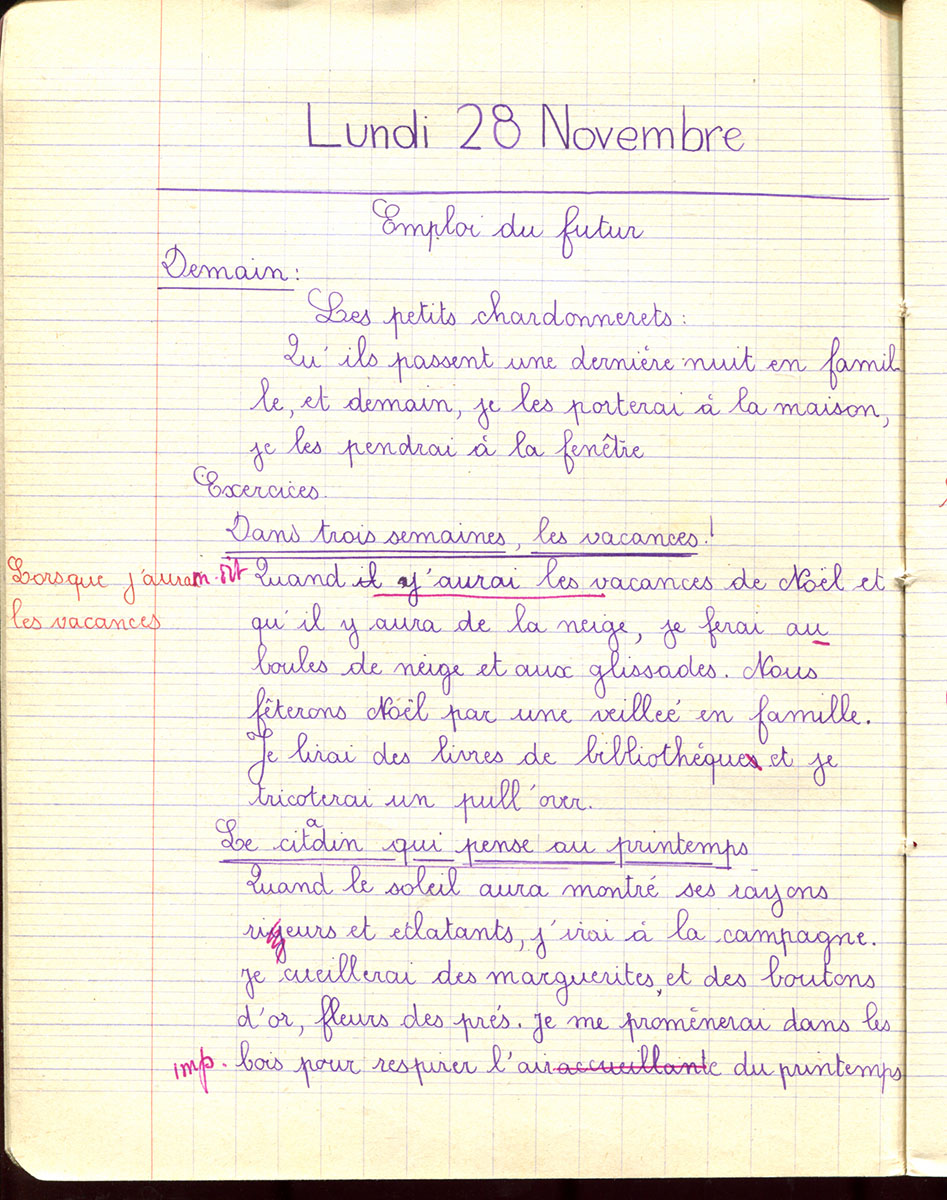 Lundi 28 Novembre
Emploi du futur
Demain:
Les petits chardonnerets:
Qu'ils passent une dernière nuit en famil
le, et demain, je les porterai à la maison,
je les pendrai à la fenêtre
Exercices.
Dans trois semaines, les vacances!
Lorsque j'aurai
les vacances
m. dt Quand il y'aurai les vacances de Noël et
qu'il y aura de la neige, je ferai au
boules de neige et aux glissades. Nous
fêterons Noël par une veilleé en famille.
Je lirai des livres de bibliothèques et je
tricoterai un pull'over.
Le citadin qui pense au printemps
Quand le soleil aura montré ses rayons
rigeurs et eclatants, j'irai à la campagne.
Je cueillerai des marguerites, et des boutons
d'or, fleurs des prés. Je me promènerai dans les
imp. bois pour respirer l'air accueillante du printemps